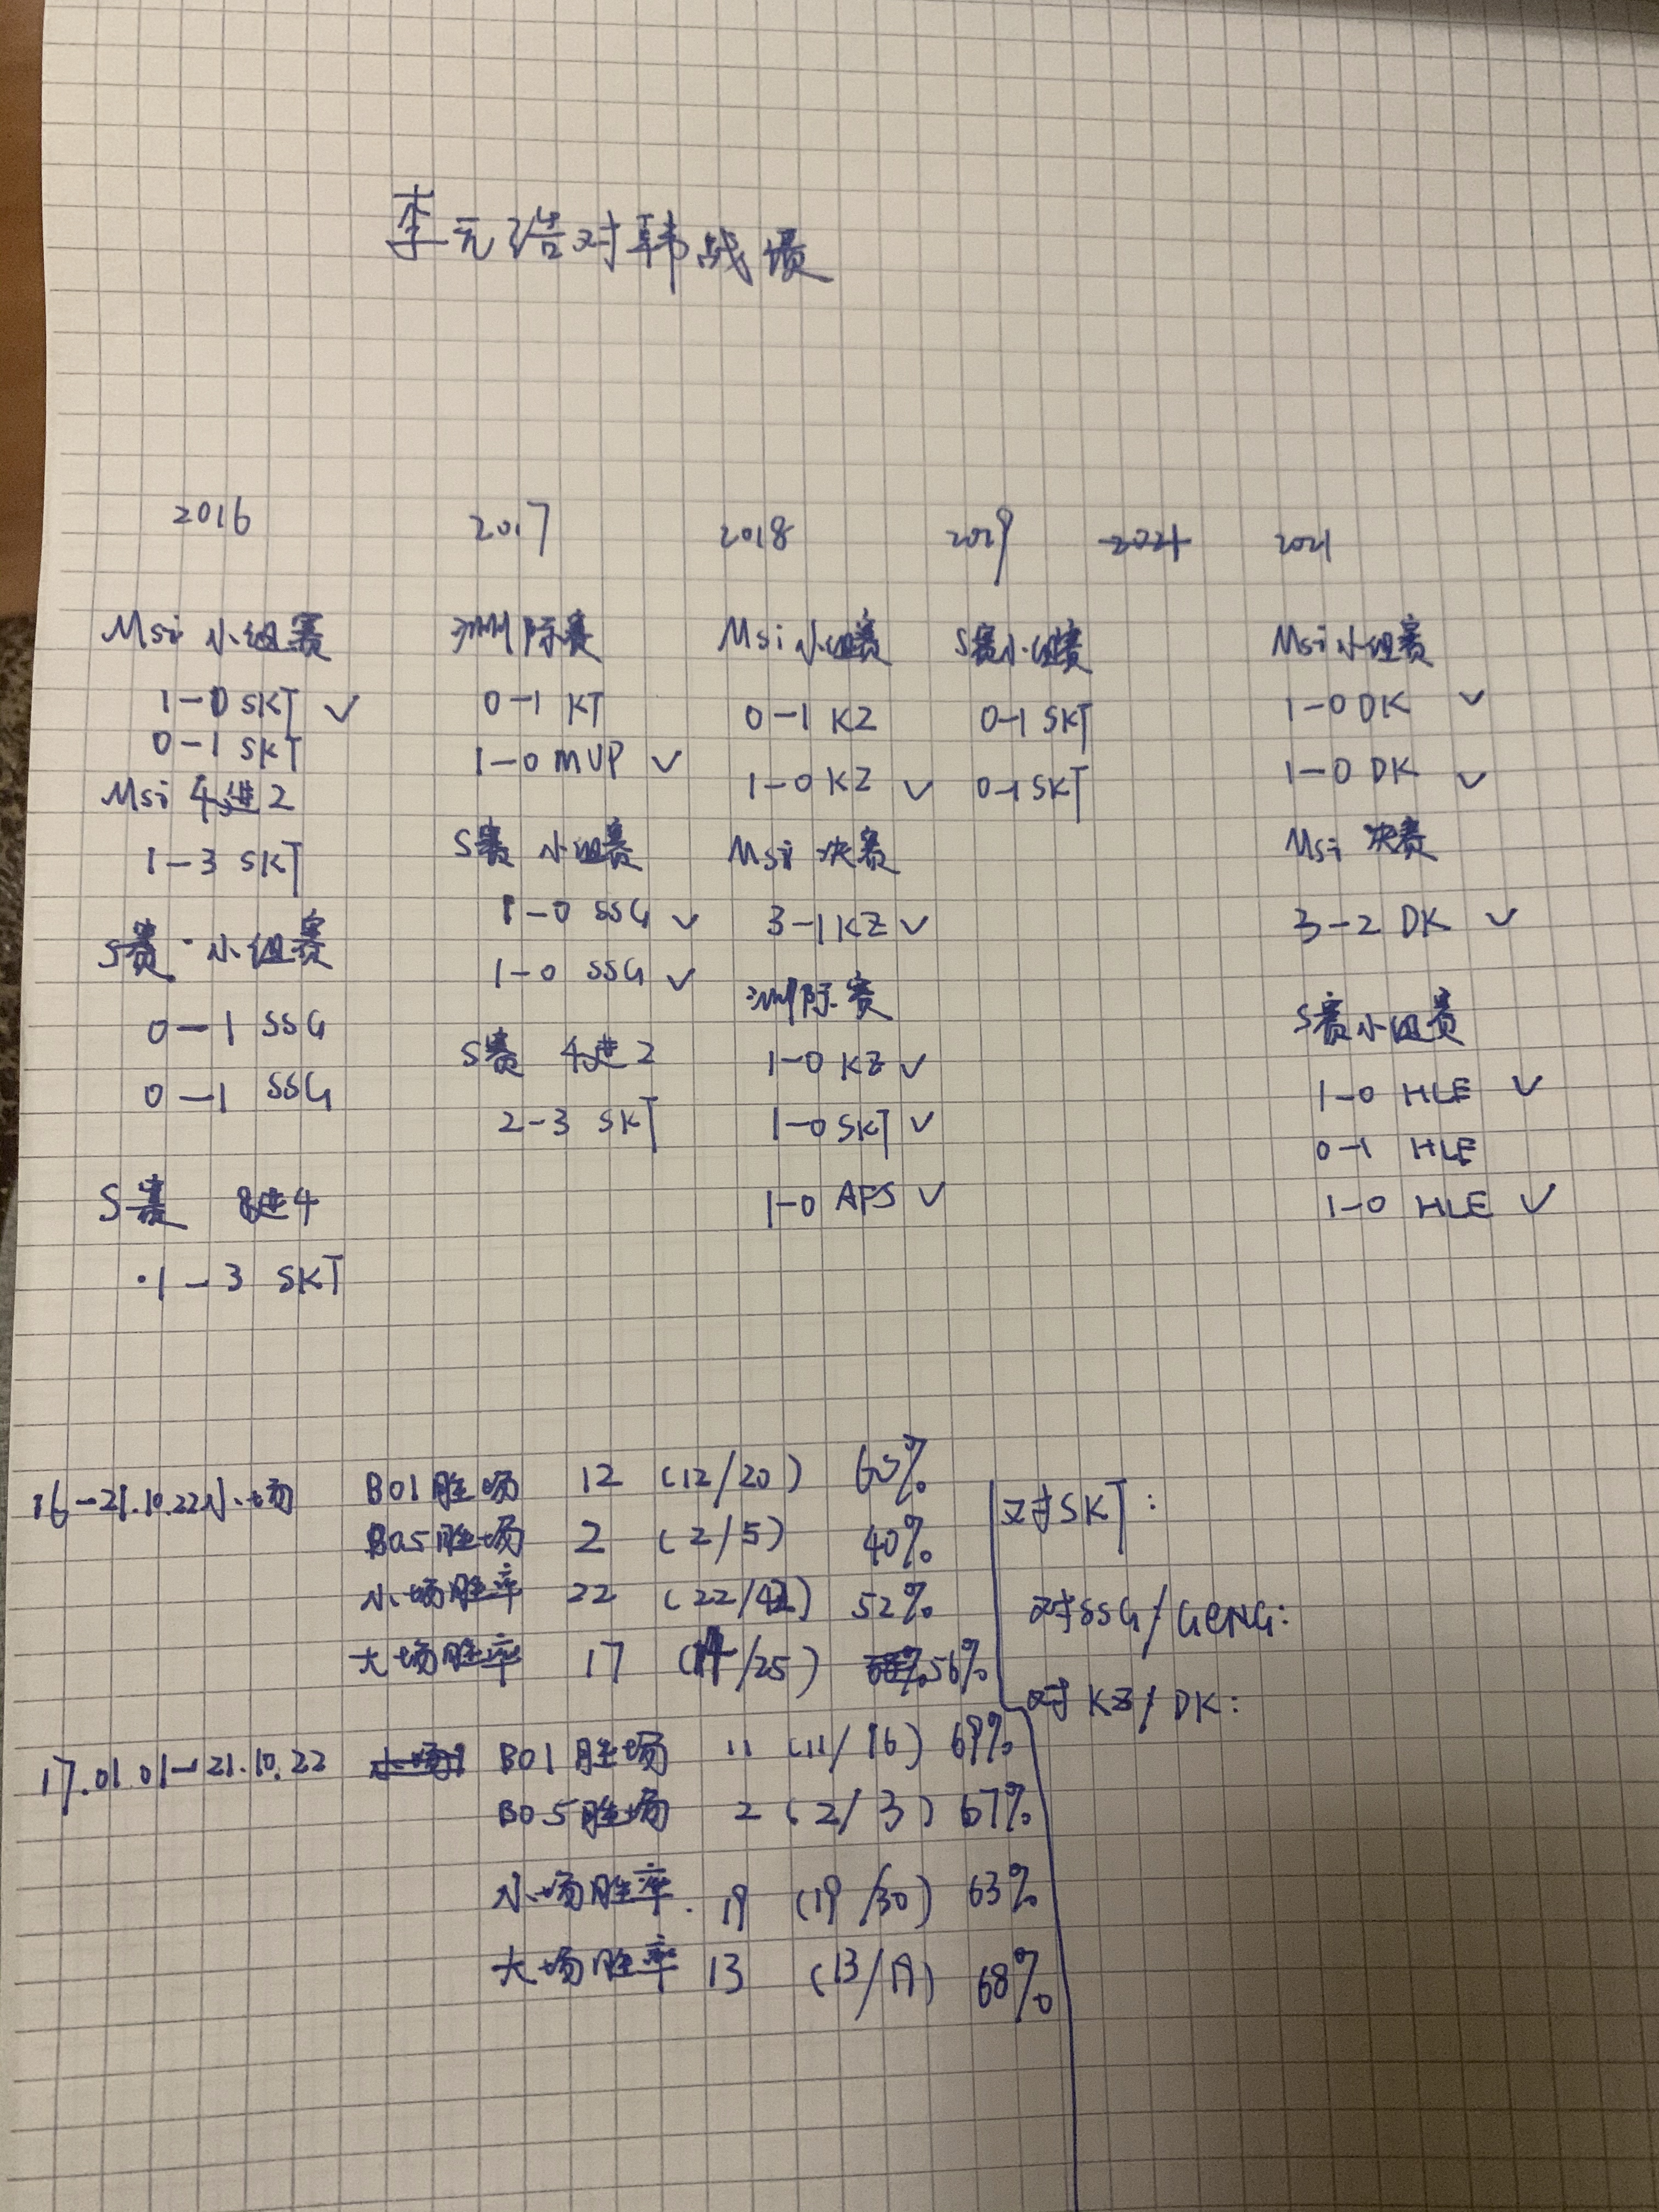 李元浩对韩战绩
2016
Msi 小组赛
1-0 SKT ✓
0-1 SKT
Msi 4进2
1-3 SKT
S赛·小组赛
0-1 SSG
0-1 SSG
S赛 8进4
·1-3 SKT
2017
洲际赛
0-1 KT
1-0 MVP ✓
S赛 小组赛
1-0 SSG ✓
1-0 SSG ✓
S赛 4进2
2-3 SKT
2018
Msi 小组赛
0-1 KZ
1-0 KZ ✓
Msi 决赛
3-1 KZ ✓
洲际赛
1-0 KZ ✓
1-0 SKT ✓
1-0 AFS ✓
2019
S赛小组赛
0-1 SKT
0-1 SKT
2021
2021
Msi 小组赛
1-0 DK ✓
1-0 DK ✓
Msi 决赛
3-2 DK ✓
S赛小组赛
1-0 HLE ✓
0-1 HLE
1-0 HLE ✓
16-21.10.22小场 BO1胜场 12 (12/20) 60%
BO5胜场 2 (2/5) 40%
小场胜率 22 (22/42) 52%
大场胜率 17 (14/25) 56%
17.01.01-21.10.22 小场 BO1胜场 11 (11/16) 69%
BO5胜场 2 (2/3) 67%
小场胜率. 19 (19/30) 63%
大场胜率 13 (13/19) 68%
对SKT:
对SSG/GENG:
对KZ/DK: